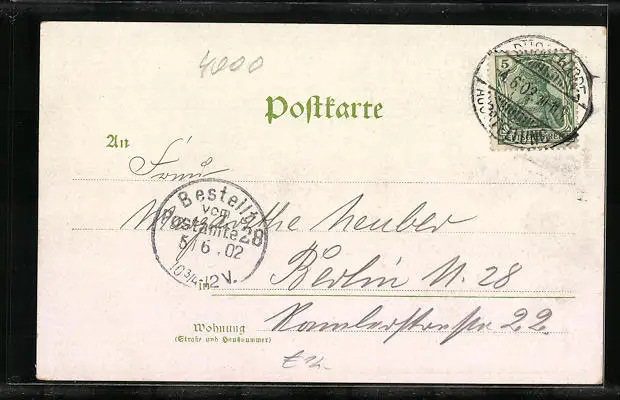 4000
Postkarte
5
DÜSSELDORF
4.6.02
AUSSTELLUNG
An Frau
Neuber
Bestellt
vom
Postamte 28
5/6.02
10¾-12V.
in Berlin N. 28
Wohnung Ramlerstrasse 22
(Straße und Hausnummer)